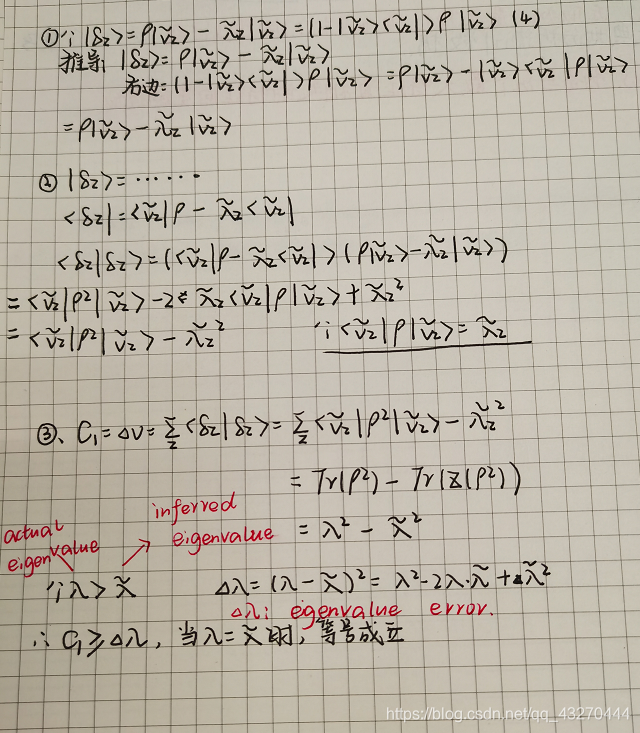 ①∵ |δz> = ρ|ṽz> - λ̃z|ṽz> = (1-|ṽz><ṽz|)ρ|ṽz> (4)
推导: |δz> = ρ|ṽz> - λ̃z|ṽz>
右边: (1-|ṽz><ṽz|)ρ|ṽz> = ρ|ṽz> - |ṽz><ṽz|ρ|ṽz>
= ρ|ṽz> - λ̃z|ṽz>
② |δz> = ⋯⋯
<δz| = <ṽz|ρ - λ̃z<ṽz|
<δz|δz> = (<ṽz|ρ - λ̃z<ṽz|>(ρ|ṽz> - λ̃z|ṽz>)
= <ṽz|ρ²|ṽz> - 2 λ̃z<ṽz|ρ|ṽz> + λ̃z²
= <ṽz|ρ²|ṽz> - λ̃z² ∵<ṽz|ρ|ṽz> = λ̃z
③、C₁ = ΔV = Σz <δz|δz> = Σz <ṽz|ρ²|ṽz> - λ̃z²
= Tr(ρ²) - Tr(Z(ρ²))
actual eigenvalue
inferred eigenvalue
= λ² - λ̃²
∵λ > λ̃ Δλ = (λ - λ̃)² = λ² - 2λ·λ̃ + λ̃²
Δλ: eigenvalue error.
∴ C₁ ≥ Δλ, 当λ = λ̃时, 等号成立
https://blog.csdn.net/qq_43270444